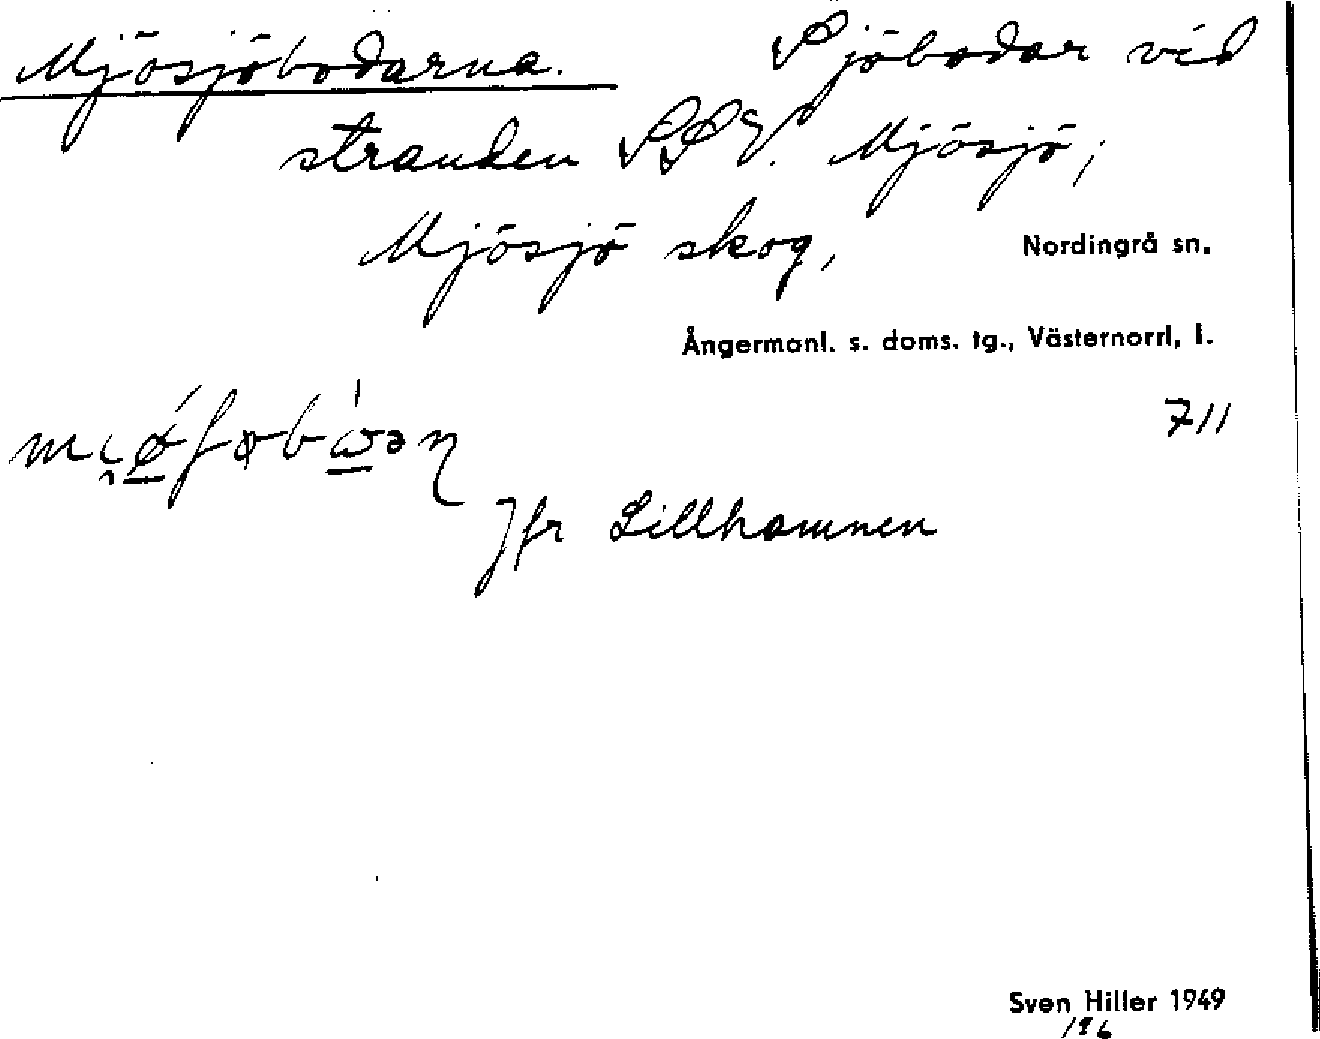 Mjösjöbodarna. Sjöbodar vid
stranden SSV. Mjösjö;
Mjösjö skog, Nordingrå sn.
Ångermanl. s. doms. tg., Västernorrl. l.
711
Jfr Lillhamnen
Sven Hiller 1949